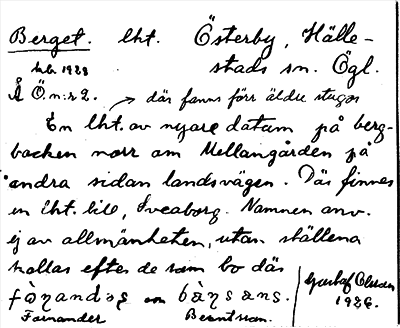 Berget. lht. Österby, Hälle-
stads sn. Ögl.
1928
Å Ö. n:r 2. → där fanns förr äldre stugor
En lht. av nyare datum på berg-
backen norr om Mellangården på
andra sidan landsvägen. Där finnes
en lht. till, Sveaborg. Namnen anv.
ej av allmänheten, utan ställena
kallas efter de som bo där
Gustaf Olsson
1926.